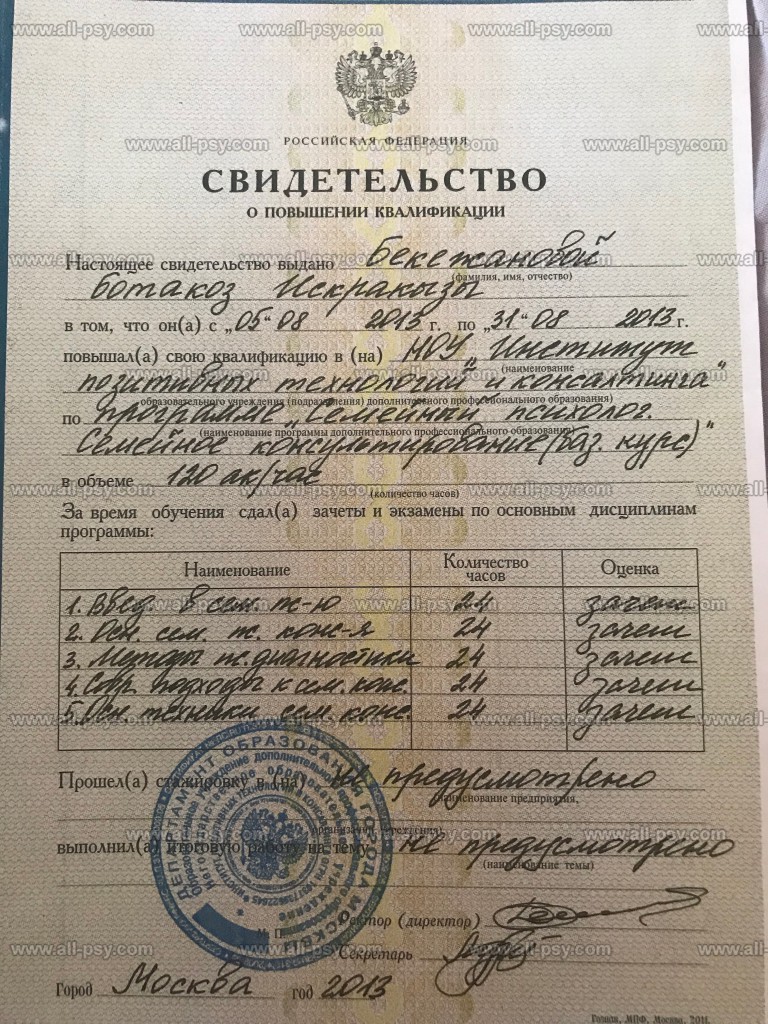 РОССИЙСКАЯ ФЕДЕРАЦИЯ
СВИДЕТЕЛЬСТВО
О ПОВЫШЕНИИ КВАЛИФИКАЦИИ
Настоящее свидетельство выдано Бекежановой
(фамилия, имя, отчество)
Ботакоз Искракызы
в том, что он(а) с „05“ 08 2013 г. по „31“ 08 2013 г.
повышал(а) свою квалификацию в (на) НОУ „Институт
(наименование
позитивных технологий и консалтинга“
образовательного учреждения (подразделения) дополнительного профессионального образования)
по программе „Семейный психолог.
(наименование программы дополнительного профессионального образования)
Семейное консультирование (баз. курс)“
в объеме 120 ак/час
(количество часов)
За время обучения сдал(а) зачеты и экзамены по основным дисциплинам
программы:
Наименование Количество часов Оценка
1. Введ. в сем. пс-ю 24 зачет
2. Осн. сем. пс. конс-я 24 зачет
3. Методы пс. диагностики 24 зачет
4. Совр. подходы к сем. конс. 24 зачет
5. Осн. техники сем. конс. 24 зачет
Прошел(а) стажировку в (на) Не предусмотрено
(наименование предприятия,
организации, учреждения)
выполнил(а) итоговую работу на тему Не предусмотрено
(наименование темы)
Ректор (директор)
Секретарь
М. П.
ДЕПАРТАМЕНТ ОБРАЗОВАНИЯ ГОРОДА МОСКВЫ
Город Москва год 2013
Гознак, МПФ, Москва, 2011.
www.all-psy.com